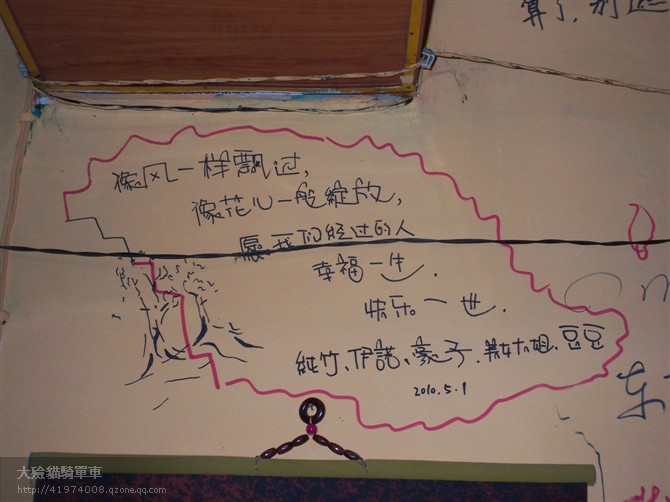 算了,别
像风一样飄过,
像花儿一般綻放,
愿我们经过的人
幸福一生.
快乐一世.
純竹、伊諾、豪子、美女大姐、豆豆
2010.5.1
大臉貓騎軍車
http://41974008.qzone.qq.com